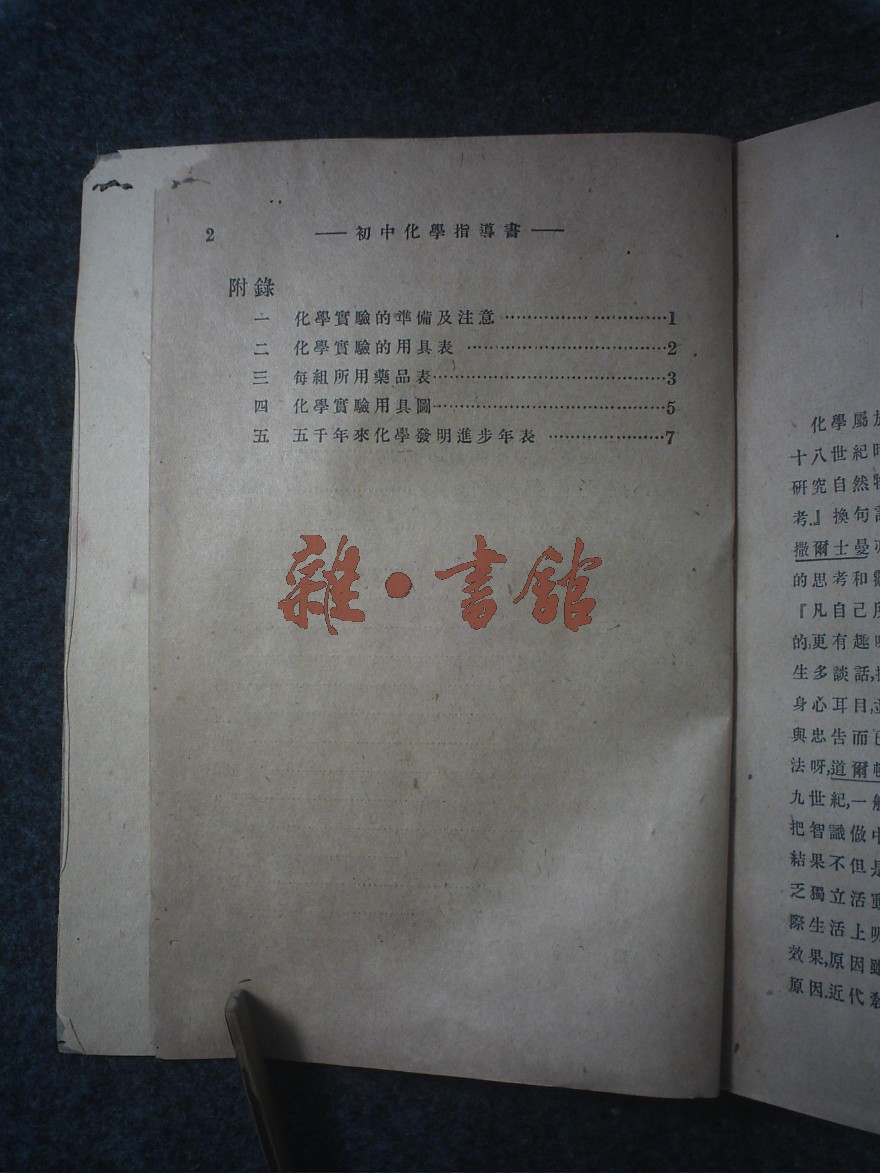 2 ——初中化學指導書——
附錄
一 化學實驗的準備及注意 ……………… …………1
二 化學實驗的用具表 ……………………………2
三 每組所用藥品表…………………………………3
四 化學實驗用具圖…………………………………5
五 五千年來化學發明進步年表 …………………7
雜·書館
化學屬
十八世紀
研究自然
考.』換句
撒爾士曼
的思考和
『凡自己
的,更有趣
生多談話,
身心耳目,
與忠告而
法呀,道爾
九世紀,一
把智識做
結果不但
乏獨立活
際生活上
效果,原因
原因.近代